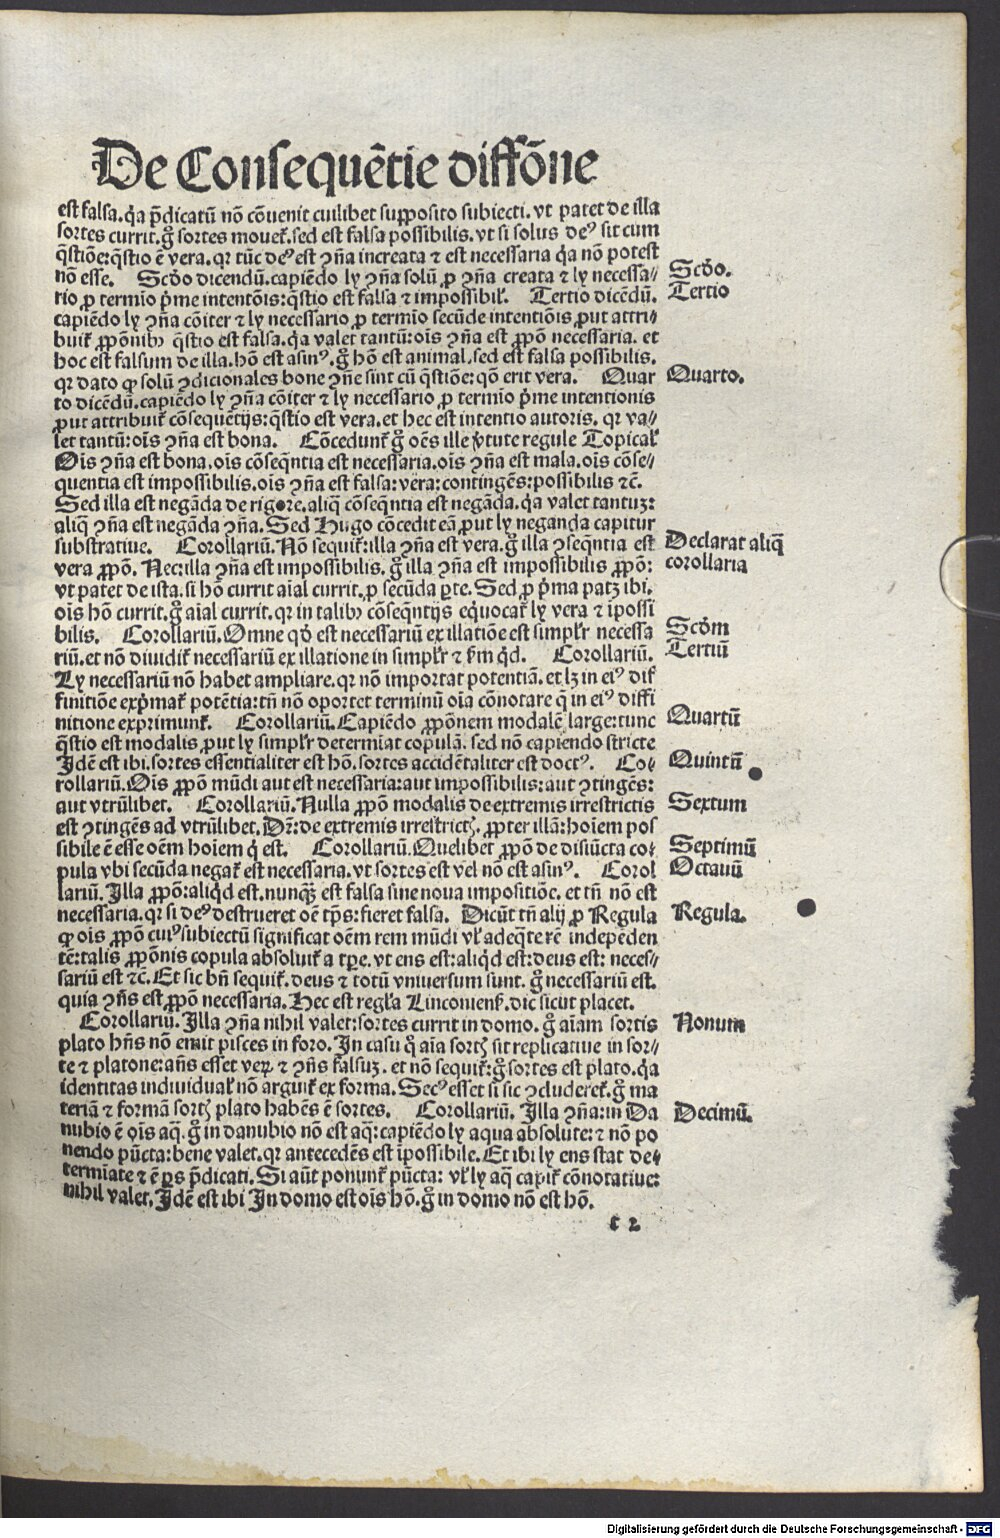 De Consequētie diffōne
est falsa. q̇a p̄dicatū nō cōuenit cuilibet supposito subiecti. vt patet de illa
sortes currit. gͦ sortes mouet᷑. sed est falsa possibilis. vt si solus deꝰ sit cum
q̄stiōe: q̄stio ē vera. qꝛ tūc deꝰ est ꝯn̄a increata ⁊ est necessaria q̇a nō potest
nō esse. Scd̓o dicendū. capiēdo ly ꝯn̄a solū ꝓ ꝯn̄a creata ⁊ ly necessa⸗
rio ꝓ termīo p̓me intentōnis: q̄stio est falsa ⁊ impossibil᷑. Tertio dicēdū.
capiēdo ly ꝯn̄a cōiter ⁊ ly necessario ꝓ termīo secūde intentiōis ꝓut attri⸗
buit᷑ ꝓpōnibꝫ q̄stio est falsa. q̇a valet tantū: oīs ꝯn̄a est ꝓpō necessaria. et
hoc est falsum de illa. hō est asinꝰ. gͦ hō est animal. sed est falsa possibilis.
qꝛ dato ꝙ solū ꝯdicionales bone ꝯn̄e sint cū q̄stiōe: qō erit vera. Quar
to dicēdū. capiēdo ly ꝯn̄a cōiter ⁊ ly necessario ꝓ termīo p̓me intentionis
ꝓut attribuit᷑ cōsequētijs: q̄stio est vera. et hec est intentio autoris. qꝛ va⸗
let tantū: oīs ꝯn̄a est bona. Cōcedunt᷑ gͦ oēs ille v̓tute regule Topical᷑
Oīs ꝯn̄a est bona. oīs cōseq̄ntia est necessaria. oīs ꝯn̄a est mala. oīs cōse⸗
quentia est impossibilis. oīs ꝯn̄a est falsa: vera: contingēs: possibilis ⁊c̄.
Sed illa est negāda de rigore. aliq̄ cōseq̄ntia est negāda. q̇a valet tantuꝫ:
aliq̄ ꝯn̄a est negāda ꝯn̄a. Sed Hugo cōcedit eā ꝓut ly neganda capitur
substratiue. Corollariū. Nō sequit᷑: illa ꝯn̄a est vera. gͦ illa ꝯseq̄ntia est
vera ꝓpō. Nec: illa ꝯn̄a est impossibilis. gͦ illa ꝯn̄a est impossibilis ꝓpō:
vt patet de ista. si hō currit aīal currit. ꝓ secūda ꝑte. Sed ꝓ p̓ma patꝫ ibi.
oīs hō currit. gͦ aīal currit. qꝛ in talibꝫ cōseq̄ntijs eq̇uocat᷑ ly vera ⁊ īpossi
bilis. Corollariū. Omne qd̓ est necessariū ex illatiōe est simpl᷑r necessa
riū. et nō diuidit᷑ necessariū ex illatione in simpl᷑r ⁊ ẜm q̇d. Corollariū.
Ly necessariū nō habet ampliare. qꝛ nō importat potentiā. et lꝫ in eiꝰ dif
finitiōe exp̓mat᷑ potētia: tn̄ nō oportet terminū oīa cōnotare q̄ in eiꝰ diffi
nitione exprimunt᷑. Corollariū. Capiēdo ꝓpōnem modalē large: tunc
q̄stio est modalis ꝓut ly simpl᷑r determīat copulā. sed nō capiendo stricte
Idē est ibi. sortes essentialiter est hō. sortes accidētaliter est doctꝰ. Co⸗
rollariū. Oīs ꝓpō mūdi aut est necessaria: aut impossibilis: aut ꝯtingēs:
aut vtrūlibet. Corollariū. Nulla ꝓpō modalis de extremis irrestrictis
est ꝯtingēs ad vtrūlibet. Dr̄: de extremis irrestrictꝭ. ꝓpter illā: hoīem pos
sibile ē esse oēm hoīem q̇ est. Corollariū. Quelibet ꝓpō de disiūcta co⸗
pula vbi secūda negat᷑ est necessaria. vt sortes est vel nō est asinꝰ. Corol
lariū. Illa ꝓpō: aliq̇d est. nunqꝫ̄ est falsa sine noua impositiōe. et tn̄ nō est
necessaria. qꝛ si deꝰ destrueret oē tp̄s: fieret falsa. Dicūt tn̄ alij ꝓ Regula
ꝙ oīs ꝓpō cuiꝰ subiectū significat oēm rem mūdi vl᷑ adeq̄te rē indepēden
tē: talis ꝓpōnis copula absoluit᷑ a tꝑe. vt ens est: aliq̇d est: deus est: neces⸗
sariū est ⁊c̄. Et sic bn̄ sequit᷑. deus ⁊ totū vniuersum sunt. gͦ necessariū est.
quia ꝯn̄s est ꝓpō necessaria. Hec est regl᷑a Linconienẜ. dic sicut placet.
Corollariū. Illa ꝯn̄a nihil valet: sortes currit in domo. gͦ aīam sortis
plato hn̄s nō emit pisces in foro. In casu q̇ aīa sortꝭ sit replicatiue in sor⸗
te ⁊ platone: an̄s esset veꝝ ⁊ ꝯn̄s falsuꝫ. et nō sequit᷑: gͦ sortes est plato. q̇a
identitas indiuidual᷑ nō arguit᷑ ex forma. Secꝰ esset si sic ꝯcluderet᷑. gͦ ma
teriā ⁊ formā sortꝭ plato habēs ē sortes. Corollariū. Illa ꝯn̄a: in Da
nubio ē oīs aq̄. gͦ in danubio nō est aq̄: capiēdo ly aqua absolute: ⁊ nō po
nendo pūcta: bene valet. qꝛ antecedēs est īpossibile. Et ibi ly ens stat de⸗
termīate ⁊ ē ꝑs p̄dicati. Si aūt ponunt᷑ pūcta: vl᷑ ly aq̄ capit᷑ cōnotatiue:
nihil valet. Idē est ibi In domo est oīs hō. gͦ in domo nō est hō.
t 2
Scd̓o.
Tertio
Quarto.
Declarat aliq̄
corollaria
Scd̓m
Tertiū
Quartū
Quintū
Sextum
Septimū
Octauū
Regula.
Nonum
Decimū.
Digitalisierung gefördert durch die Deutsche Forschungsgemeinschaft - DFG